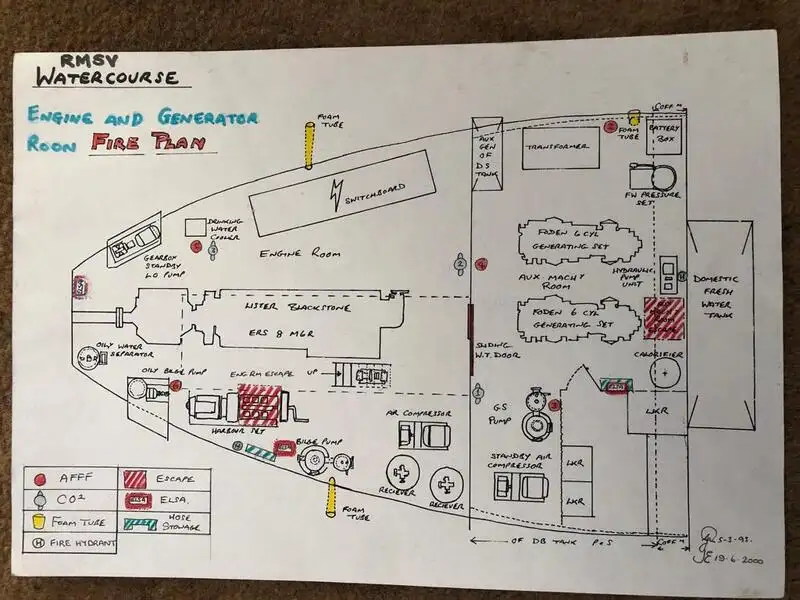 RMSV
WATERCOURSE
ENGINE AND GENERATOR
ROOM FIRE PLAN
FOAM
TUBE
SWITCHBOARD
DRINKING
WATER
COOLER
GEARBOX
STANDBY
L.O PUMP
5
ENGINE ROOM
AUX
GEN
OF
DS
TANK
TRANSFORMER
2
FOAM
TUBE
BATTERY
BOX
COFF M
FW PRESSURE
SET
FODEN 6 CYL
GENERATING SET
2
4
AUX. MACHY
ROOM
HYDRAULIC
PUMP
UNIT
H
DOMESTIC
FRESH
WATER
TANK
FODEN 6 CYL
GENERATING SET
ESCAPE
LISTER BLACKSTONE
ERS 8 MGR
SLIDING
W.T. DOOR
CALORIFIER
OILY WATER
SEPARATOR
OILY BILGE PUMP
6
ENG RM ESCAPE
UP
1
ELSA
LKR
HARBOUR SET
AIR COMPRESSOR
GS
PUMP
3
H
ELSA
BILGE PUMP
RECIEVER
RECIEVER
STANDBY AIR
COMPRESSOR
LKR
LKR
FOAM
TUBE
AFFF
ESCAPE
CO²
ELSA
ELSA.
FOAM TUBE
HOSE
STOWAGE
H FIRE HYDRANT
OF DB TANK P+S
COFF M
5-3-93.
19.6.2000